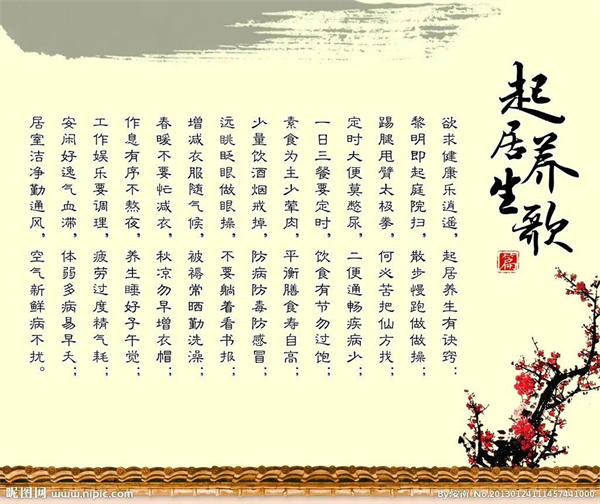 起居养生歌
篇
欲求健康乐逍遥，起居养生有诀窍：
黎明即起庭院扫，散步慢跑做做操；
踢腿甩臂太极拳，何必苦把仙方找；
定时大便莫憋尿，二便通畅疾病少；
一日三餐要定时，饮食有节勿过饱；
素食为主少荤肉，平衡膳食寿自高；
少量饮酒烟戒掉，防病防毒防感冒；
远眺眨眼做眼操，不要躺着看书报；
增减衣服随气候，被褥常晒勤洗澡；
春暖不要忙减衣，秋凉勿早增衣帽；
作息有序不熬夜，养生睡好子午觉；
工作娱乐要调理，疲劳过度精气耗；
安闲好逸气血滞，体弱多病易早夭；
居室洁净勤通风，空气新鲜病不扰。
昵图网 www.nipic.com
By:安南 No.20130124111457441000